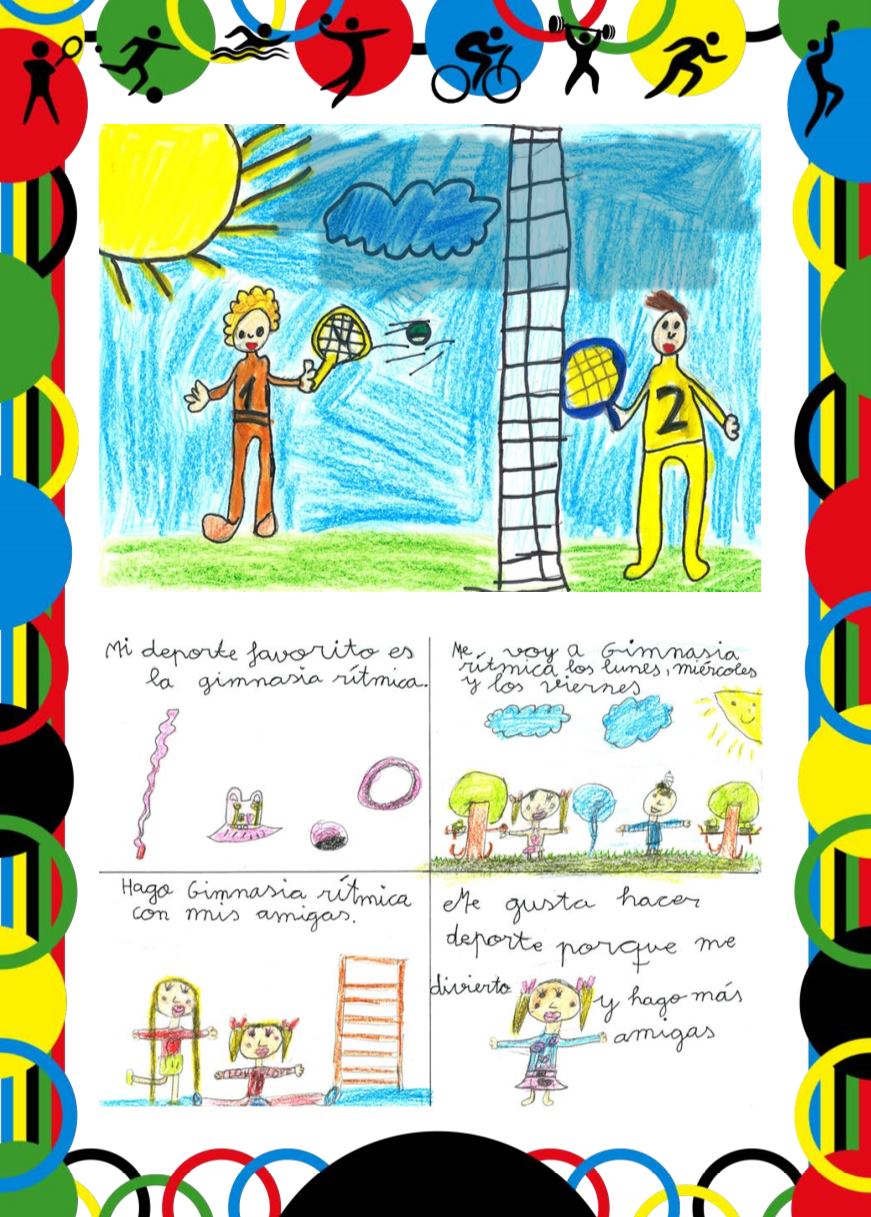 1
2
Mi deporte favorito es
la gimnasia rítmica.
Me voy a Gimnasia
rítmica los lunes, miércoles
y los viernes
Hago Gimnasia rítmica
con mis amigas.
Me gusta hacer
deporte porque me
divierto y hago más
amigas